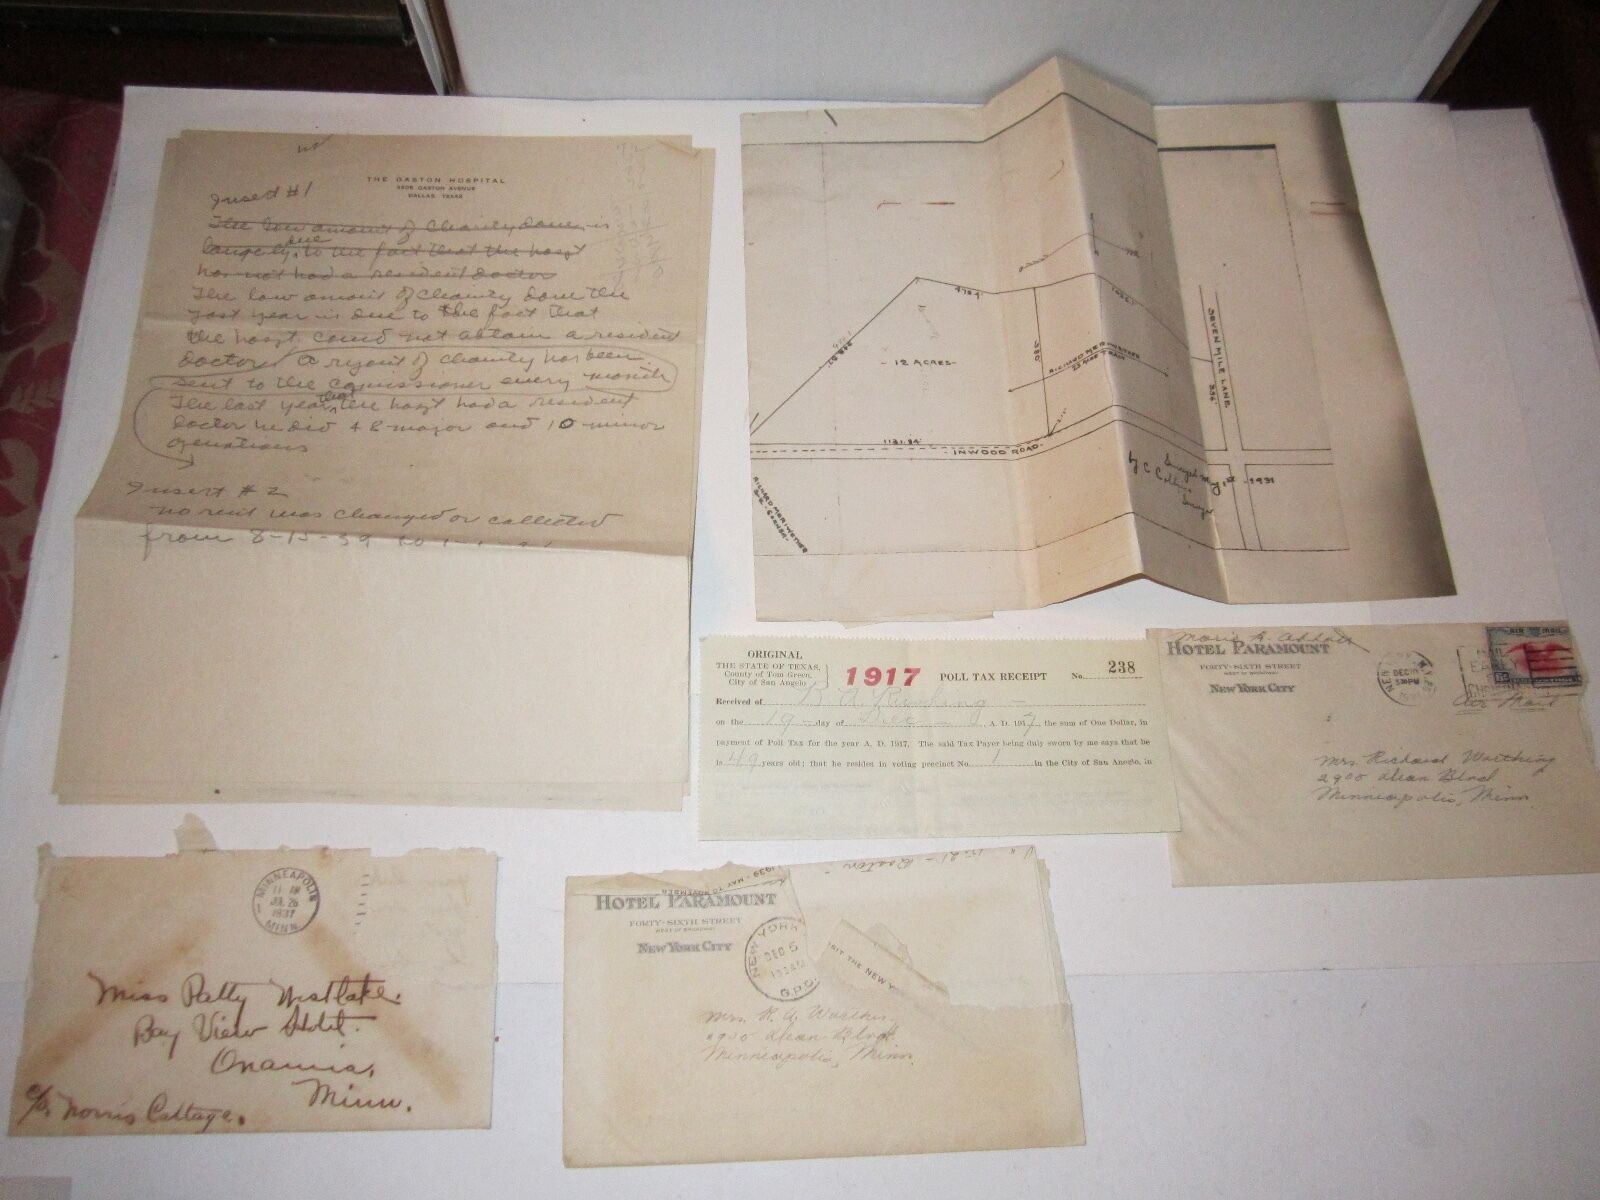 THE GASTON HOSPITAL
3505 GASTON AVENUE
DALLAS, TEXAS
Insert #1
The low amount of Charity done is
largely due to the fact that the hospt
has not had a resident doctor
The low amount of charity done the
past year is due to the fact that
the hospt. could not obtain a resident
doctor. A report of charity has been
sent to the commissioner every month
The last year that the hospt had a resident
doctor he did 48 major and 10 minor
operations
Insert #2
no rent was charged or collected
from 8-15-39 to
12 ACRES
478.4'
RICHARD MERIWETHER
23 ACRE TRACT
SEVEN MILE LANE
336'
1131.84'
INWOOD ROAD
RICHARD MERIWETHER
S.E. CORNER
Surveyed May 1st 1931
by C Collins
Surveyor
ORIGINAL
THE STATE OF TEXAS,
County of Tom Green,
City of San Angelo
1917 POLL TAX RECEIPT No. 238
Received of B A Rushing
on the 19 day of A. D. 1917 the sum of One Dollar, in
payment of Poll Tax for the year A. D. 1917. The said Tax Payer being duly sworn by me says that he
is 49 years old; that he resides in voting precinct No. 1 in the City of San Angelo, in
HOTEL PARAMOUNT
FORTY-SIXTH STREET
WEST OF BROADWAY
NEW YORK CITY
DEC 10
5 30 PM
MAIL
EARLY
FOR
CHRISTMAS
AIR MAIL
6c
Air Mail
Mrs. Richard Worthing
2900 Dean Blvd
Minneapolis, Minn.
MINNEAPOLIS
JUL 26
1937
MINN.
Miss Patty Westlake.
Bay View Hotel.
Onamia,
Minn.
c/o Norris Cottage.
1939 - MAY TO NOVEMBER
HOTEL PARAMOUNT
FORTY-SIXTH STREET
WEST OF BROADWAY
NEW YORK CITY
NEW YORK
DEC 5
G.P.O.
VISIT THE NEW Y
Mrs. R. A. Worthing
2900 Dean Blvd
Minneapolis, Minn.